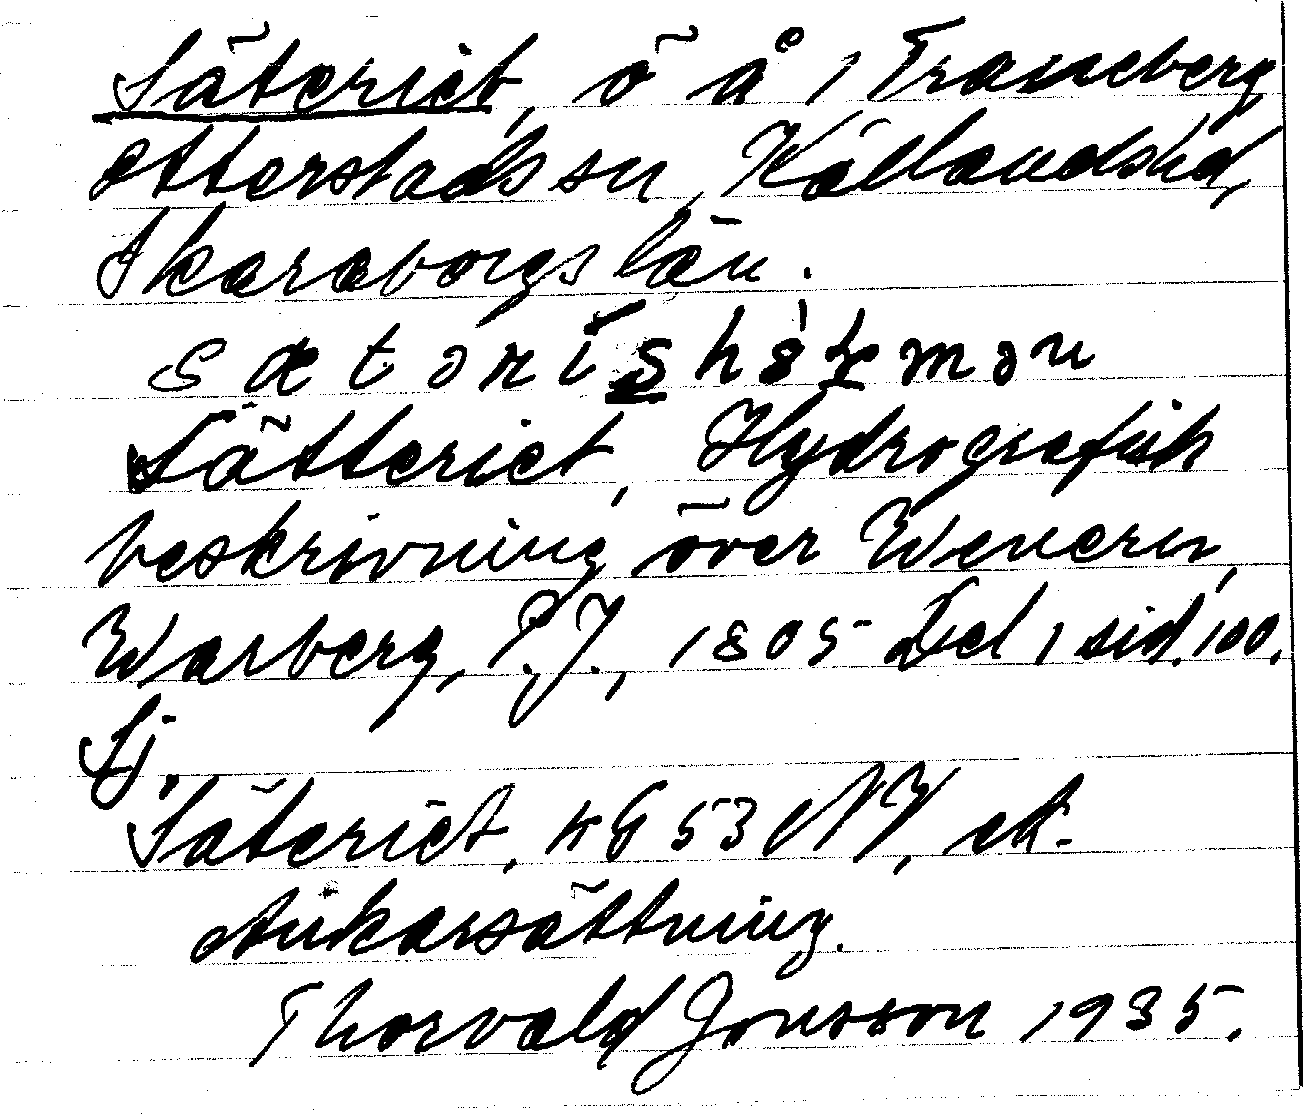 Säteriet, ö å 1 Traneberg
Otterstads sn, Kållands hd,
Skaraborgs län.
Sätteriet, Hydrografisk
beskrivning över Wenern,
Warberg, P.J., 1805 Del 1 sid. 100.
Sj.
Säteriet, kG 53 NV, ek.
Ankarsättning.
Thorvald Jonsson 1935.